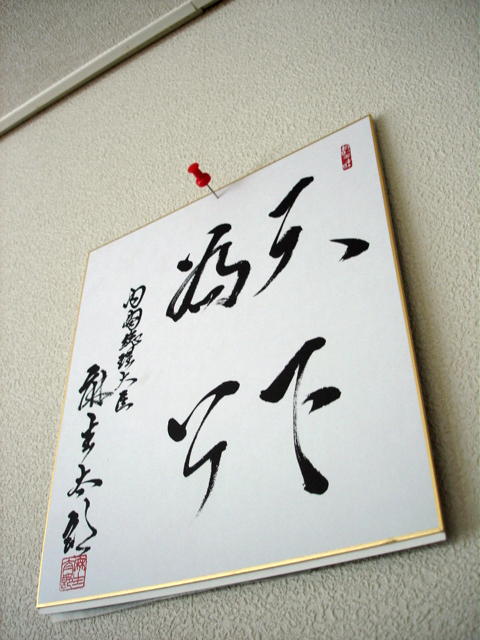 天下
為公
内閣総理大臣
麻生太郎